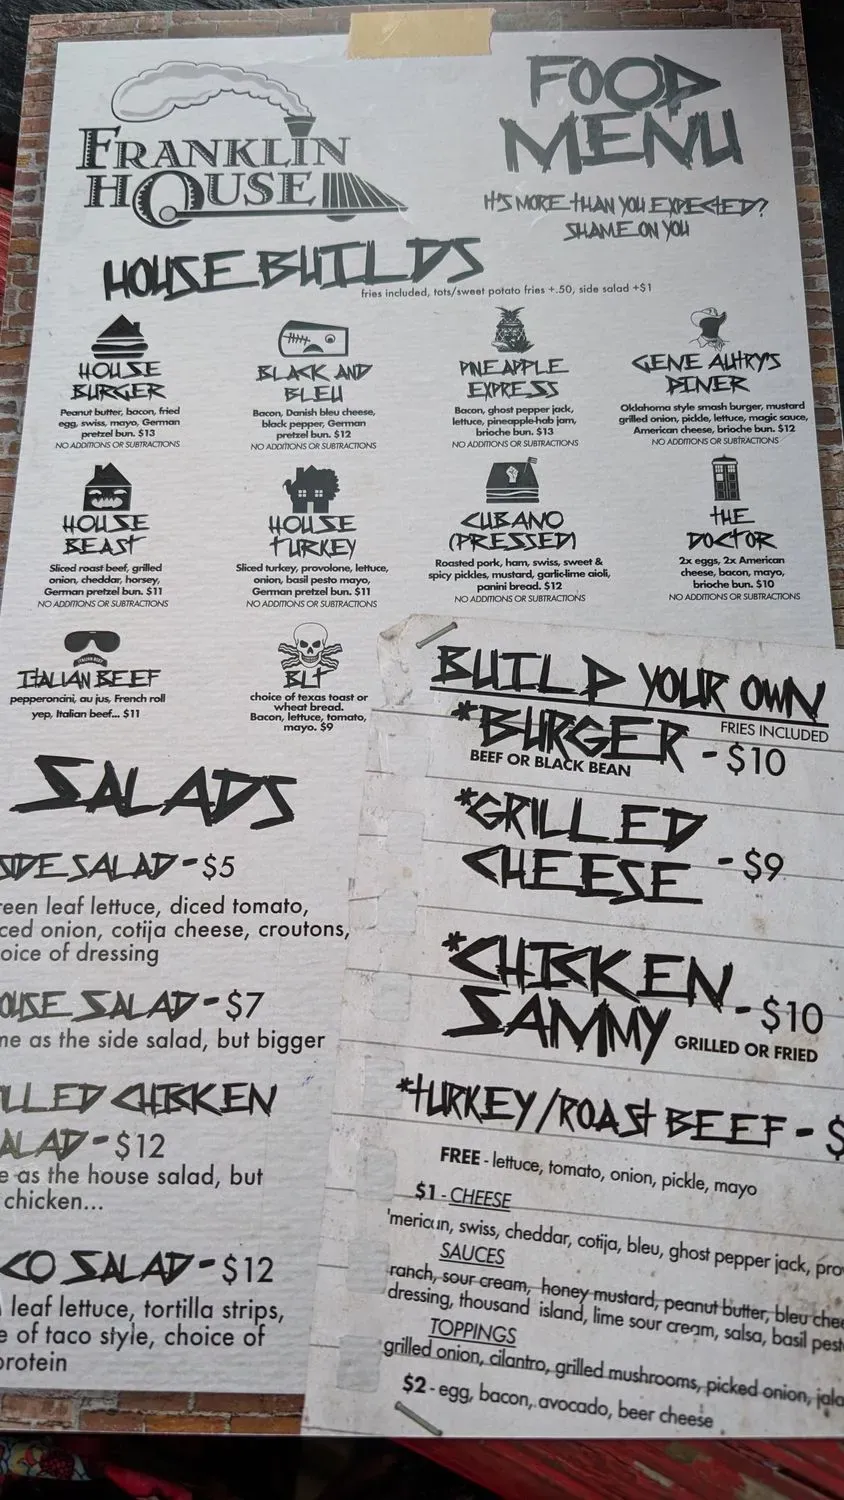 FRANKLIN
HOUSE
FOOD
MENU
IT'S MORE THAN YOU EXPECTED?
SHAME ON YOU
HOUSE BUILDS
fries included, tots/sweet potato fries +.50, side salad +$1
HOUSE
BURGER
Peanut butter, bacon, fried
egg, swiss, mayo, German
pretzel bun. $13
NO ADDITIONS OR SUBTRACTIONS
BLACK AND
BLEU
Bacon, Danish bleu cheese,
black pepper, German
pretzel bun. $12
NO ADDITIONS OR SUBTRACTIONS
PINEAPPLE
EXPRESS
Bacon, ghost pepper jack,
lettuce, pineapple-hab jam,
brioche bun. $13
NO ADDITIONS OR SUBTRACTIONS
GENE AUTRY'S
DINER
Oklahoma style smash burger, mustard
grilled onion, pickle, lettuce, magic sauce,
American cheese, brioche bun. $12
NO ADDITIONS OR SUBTRACTIONS
HOUSE
BEAST
Sliced roast beef, grilled
onion, cheddar, horsey,
German pretzel bun. $11
NO ADDITIONS OR SUBTRACTIONS
HOUSE
TURKEY
Sliced turkey, provolone, lettuce,
onion, basil pesto mayo,
German pretzel bun. $11
NO ADDITIONS OR SUBTRACTIONS
CUBANO
(PRESSED)
Roasted pork, ham, swiss, sweet &
spicy pickles, mustard, garlic-lime aioli,
panini bread. $12
NO ADDITIONS OR SUBTRACTIONS
THE
DOCTOR
2x eggs, 2x American
cheese, bacon, mayo,
brioche bun. $10
NO ADDITIONS OR SUBTRACTIONS
ITALIAN BEEF
pepperoncini, au jus, French roll
yep, Italian beef... $11
BLT
choice of texas toast or
wheat bread.
Bacon, lettuce, tomato,
mayo. $9
SALADS
SIDE SALAD - $5
reen leaf lettuce, diced tomato,
ced onion, cotija cheese, croutons,
oice of dressing
OUSE SALAD - $7
me as the side salad, but bigger
LLED CHICKEN
ALAD - $12
e as the house salad, but
chicken...
CO SALAD - $12
leaf lettuce, tortilla strips,
e of taco style, choice of
protein
BUILD YOUR OWN
FRIES INCLUDED
*BURGER - $10
BEEF OR BLACK BEAN
*GRILLED
CHEESE - $9
*CHICKEN
SAMMY - $10
GRILLED OR FRIED
*TURKEY/ROAST BEEF - $
FREE - lettuce, tomato, onion, pickle, mayo
$1 - CHEESE
'merican, swiss, cheddar, cotija, bleu, ghost pepper jack, pro
SAUCES
ranch, sour cream, honey mustard, peanut butter, bleu chee
dressing, thousand island, lime sour cream, salsa, basil pest
TOPPINGS
grilled onion, cilantro, grilled mushrooms, picked onion, jala
$2 - egg, bacon, avocado, beer cheese